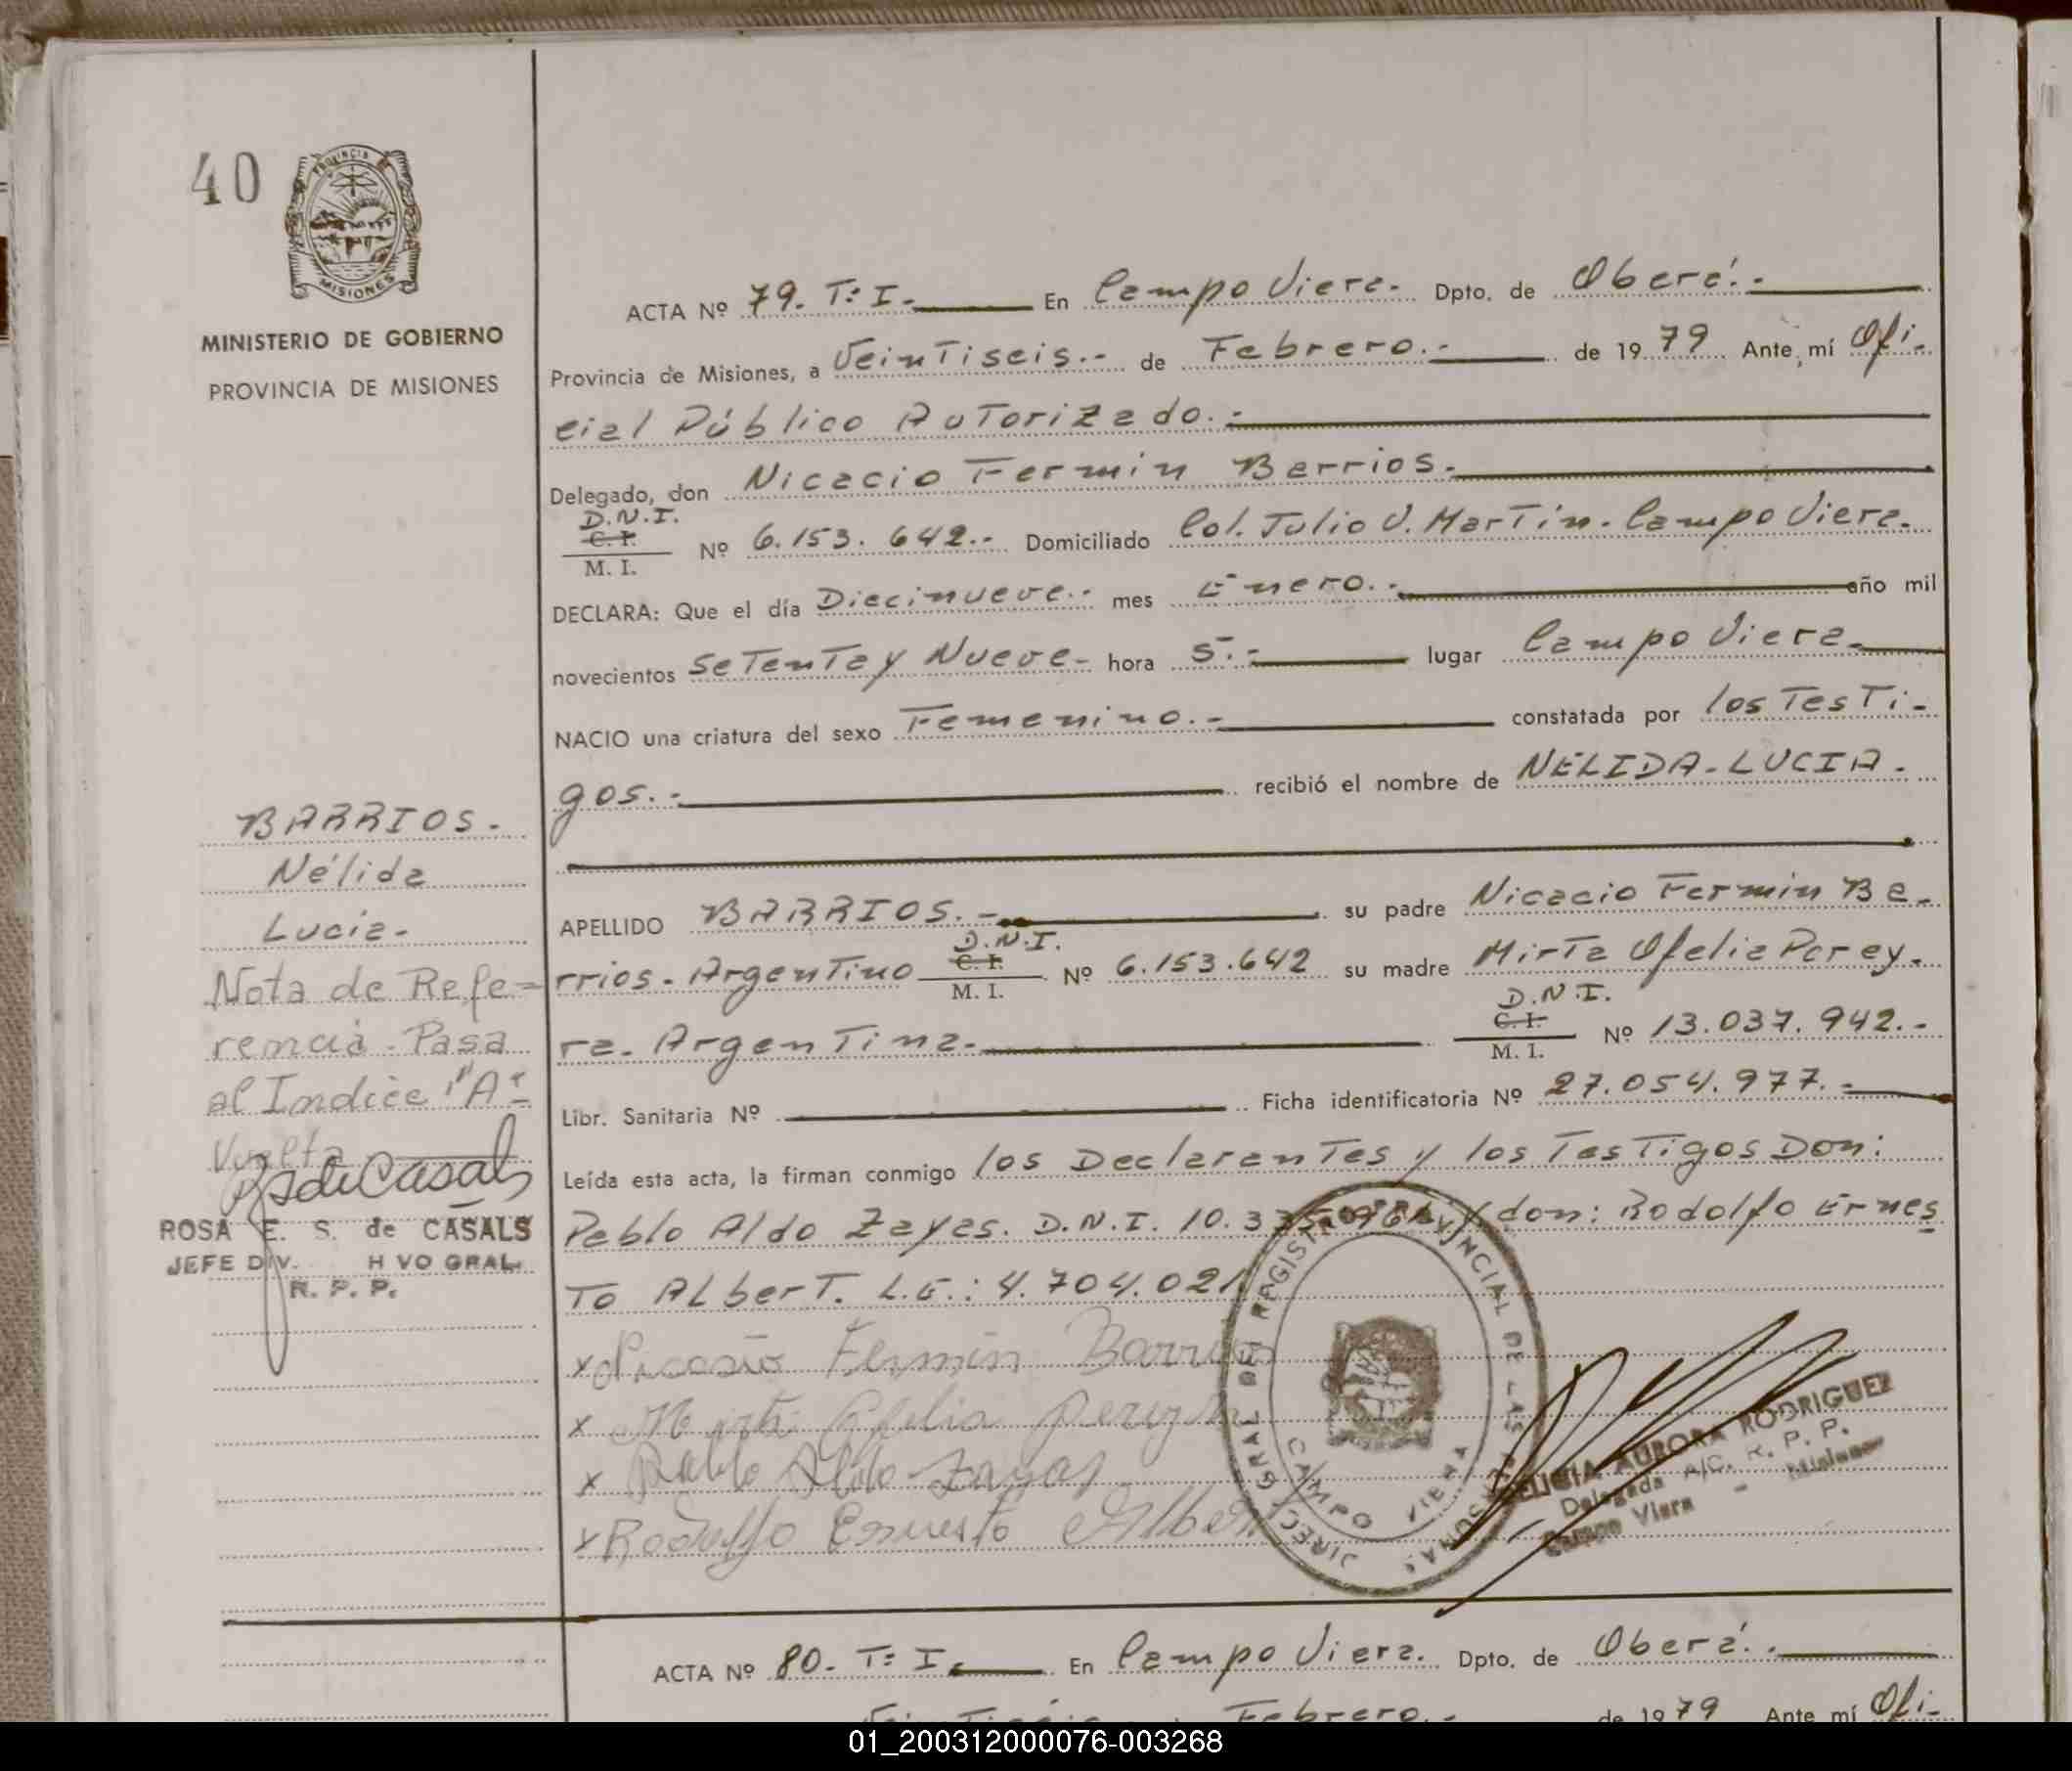 40
PROVINCIA DE
MISIONES
MINISTERIO DE GOBIERNO
PROVINCIA DE MISIONES
ACTA Nº 79. T: I.- En Campo Viera. Dpto. de Oberá.-
Provincia de Misiones, a VeinTiseis.- de Febrero.- de 1979 Ante mí Ofi-
cial Público AuTorizado.-
Delegado, don Nicacio Fermin Barrios.
D.N.I.
C. I.
M. I. Nº 6.153.642.- Domiciliado Col. Julio U. MarTin. Campo Viera.
DECLARA: Que el día Diecinueve.- mes Enero.- año mil
novecientos SeTenTa y Nueve- hora 5.- lugar Campo Viera-
NACIO una criatura del sexo Femenino.- constatada por los TesTi-
gos.- recibió el nombre de NELIDA-LUCIA.
BARRIOS.
Nélida
Lucia.
APELLIDO BARRIOS.- su padre Nicacio Fermin Ba-
D.N.I.
rrios. ArgenTino C. I. M. I. Nº 6.153.642 su madre MirTa Ofelia Perey-
D.N.I.
ra. ArgenTina. C. I. M. I. Nº 13.037.942.-
Libr. Sanitaria Nº Ficha identificatoria Nº 27.054.977.-
Leída esta acta, la firman conmigo los DeclaranTes y los TesTigos Don:
Pablo Aldo Zayas. D.N.I. 10. y don: Rodolfo Ernes
To ALberT. L.E.: 4.704.021
Nota de Refe=
rencia - Pasa
al Indice "A"
Vuelta
RSdeCasals
ROSA E. S. de CASALS
JEFE DIV. H VO GRAL.
R. P. P.
x Nicasio Fermin Barrios
x Mirta Ofelia Pereyra
x Pablo Aldo Zayas
x Rodolfo Ernesto Albert
DIRECC GRAL DEL REGISTRO PROVINCIAL DE LAS PERSONAS
CAMPO VIERA
AURORA RODRIGUEZ
Delegada A/C. R. P. P.
Campo Viera - Misiones
ACTA Nº 80. T: I. En Campo Viera. Dpto. de Oberá.-
Febrero.- de 1979 Ante mí Ofi-
01_200312000076-003268